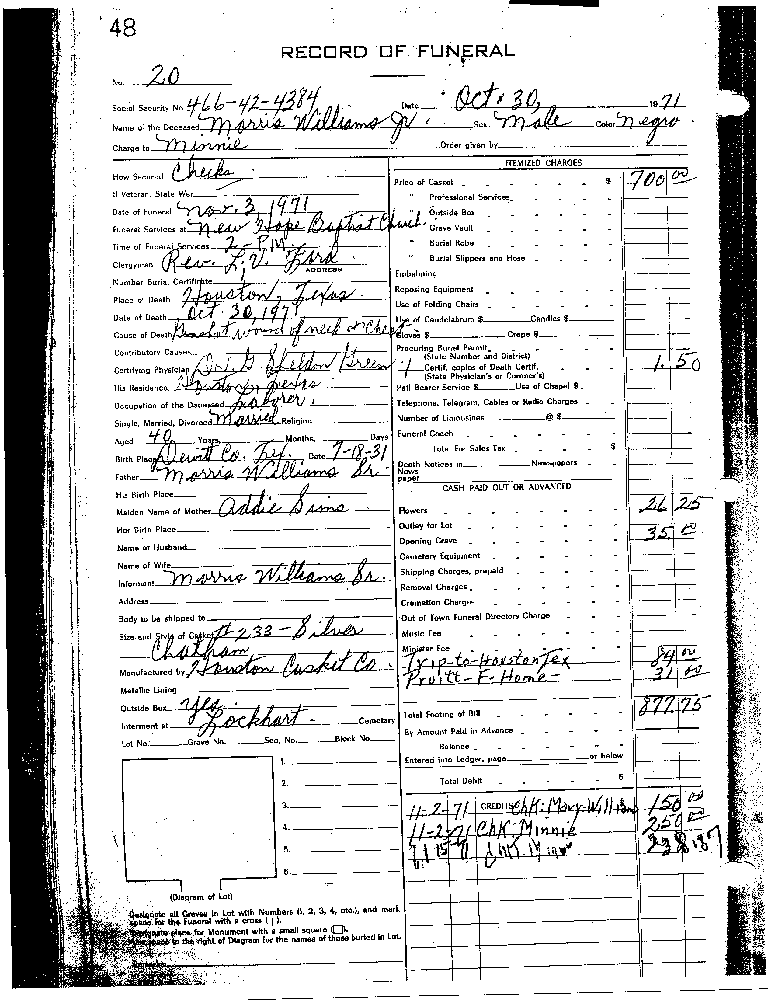 48
RECORD OF FUNERAL
No. 20
Social Security No. 466-42-4384 Date Oct. 30, 1971
Name of the Deceased Morris Williams Jr. Sex Male Color Negro
Charge to Minnie Order given by
How Secured Checks
If Veteran, State War
Date of Funeral Nov. 3, 1971
Funeral Services at New Hope Baptist Church
Time of Funeral Services 2- P.M.
Clergyman Rev. L.V. Ford
ADDRESS
Number Burial Certificate
Place of Death Houston, Texas
Date of Death Oct. 30, 1971
Cause of Death Gunshot wound of neck & Chest
Contributory Causes
Certifying Physician Sheldon Green
His Residence Houston, Texas
Occupation of the Deceased Laborer
Single, Married, Divorced Married Religion
Aged 40 Years, Months, Days
Birth Place Dewitt Co. Tex. Date 7-18-31
Father Morris Williams Sr.
His Birth Place
Maiden Name of Mother Addie Sims
Her Birth Place
Name of Husband
Name of Wife
Informant Morris Williams Sr.
Address
Body to be shipped to
Size and Style of Casket # 233 - Silver
Chatham
Manufactured by Houston Casket Co.
Metallic Lining
Outside Box Yes
Interment at Lockhart Cemetery
Lot No. Grave No. Sec. No. Block No.
1.
2.
3.
4.
5.
6.
(Diagram of Lot)
Designate all Graves in Lot with Numbers (1, 2, 3, 4, etc.), and mark
space for the Funeral with a cross ( ).
Designate place for Monument with a small square
space to the right of Diagram for the names of those buried in Lot.
ITEMIZED CHARGES
Price of Casket $ 700 00
" Professional Services
" Outside Box
" Grave Vault
" Burial Robe
" Burial Slippers and Hose
Embalming
Reposing Equipment
Use of Folding Chairs
Use of Candelabrum $ Candles $
Gloves $ Crepe $
Procuring Burial Permit
(State Number and District)
1 Certif. copies of Death Certif. 1.50
(State Physician's or Coroner's)
Pall Bearer Service $ Use of Chapel $
Telephone, Telegram, Cables or Radio Charges
Number of Limousines @ $
Funeral Coach
Total For Sales Tax $
Death Notices in Newspapers
News
paper
CASH PAID OUT OR ADVANCED
Flowers 26 25
Outlay for Lot
Opening Grave 35 00
Cemetery Equipment
Shipping Charges, prepaid
Removal Charges
Cremation Charge
Out of Town Funeral Directory Charge
Music Fee
Minister Fee
Trip-to-Houston Tex 84 00
Pruitt-F-Home- 31 00
Total Footing of Bill 877.75
By Amount Paid in Advance
Balance
Entered into Ledger, page or below
Total Debit $
11-2-71 CREDITS Chk: Mary Williams 150 00
11-2-71 Chk: Minnie 250 00